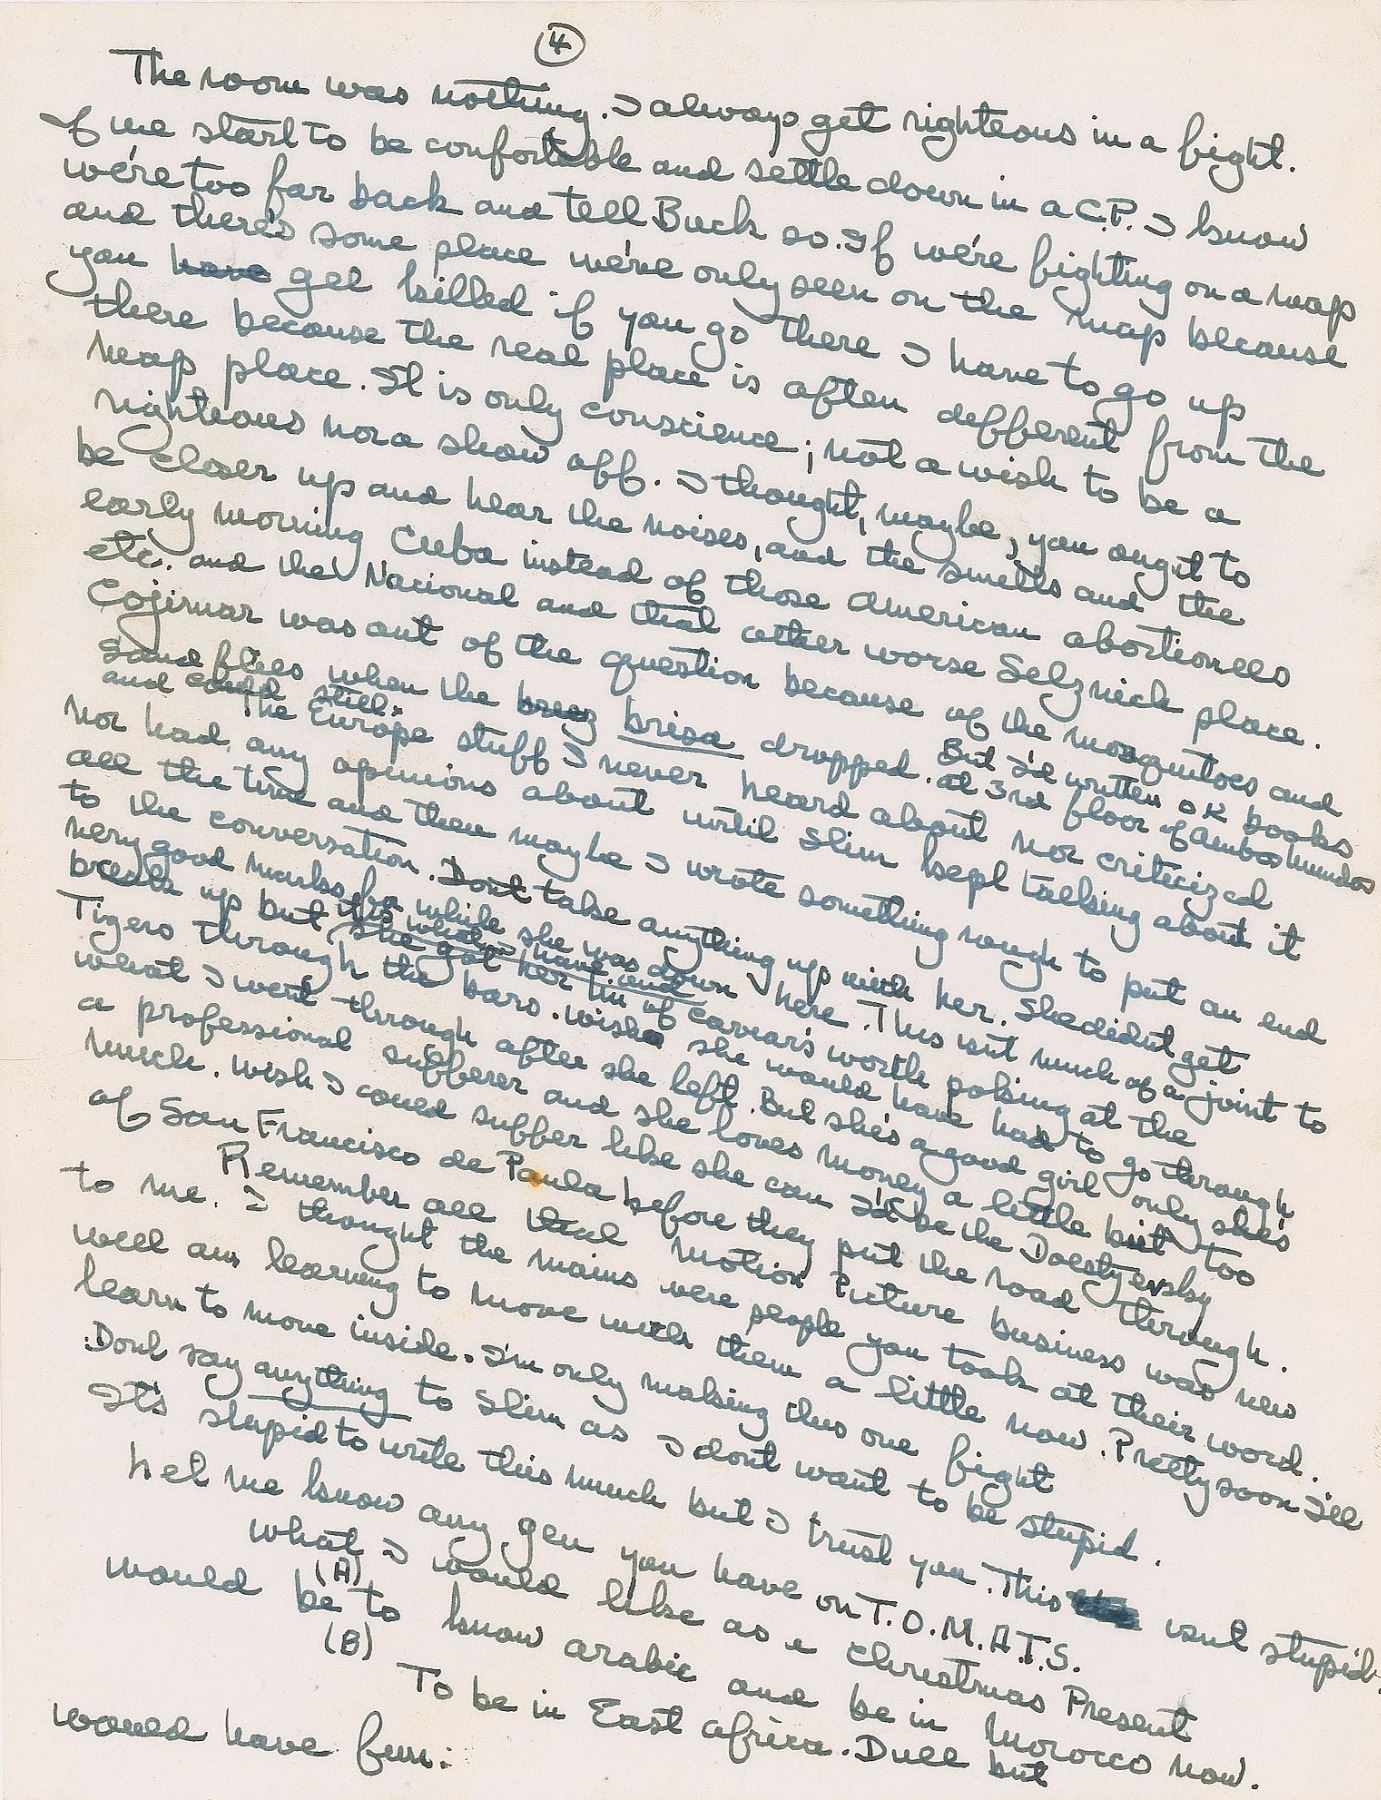 4
The room was nothing. I always get righteous in a fight.
If we start to be comfortable and settle down in a C.P. I know
we're too far back and tell Buck so. If we're fighting on a map
and there's some place we've only seen on the map because
you have get killed if you go there I have to go up
there because the real place is often different from the
map place. It is only conscience; not a wish to be a
righteous nor a show off. I thought, maybe, you ought to
be closer up and hear the noises, and the smells and the
early morning Cuba instead of those American abortionees
etc. and the Nacional and that other worse Selznick place.
Cojimar was out of the question because of the mosquitoes and
sand flies when the breez brisa dropped. But I'd written OK books
and could still. at 3rd floor of Ambos Mundos
The Europe stuff I never heard about nor criticized
nor had any opinions about until Slim kept talking about it
all the time and then maybe I wrote something rough to put an end
to the conversation. Dont take anything up with her. She didnt get
very good marks for while she was down here. This isnt much of a joint to
break up but its what I have and
she got her tin of caviar's worth poking at the
Tigers through the bars. wish she would have had to go through
what I went through after she left. But she's a good girl only she's
a professional sufferer and she loves money a little bit too
much. wish I could suffer like she can I'd be the Doestyevsky
of San Francisco de Paula before they put the road through.
Remember all that Motion Picture business was new
to me. I thought the mains were people you took at their word.
well am learning to move with them a little now. Pretty soon I'll
learn to move inside. I'm only making this one fight
Dont say anything to Slim as I dont want to be stupid.
It's stupid to write this much but I trust you. This isnt stupid.
Let me know any gen you have on T.O.M.A.T.S.
What I would like as a Christmas Present
would be (A) to know arabic and be in Morocco now.
(B)
To be in East Africa. Dull but
would have fun.